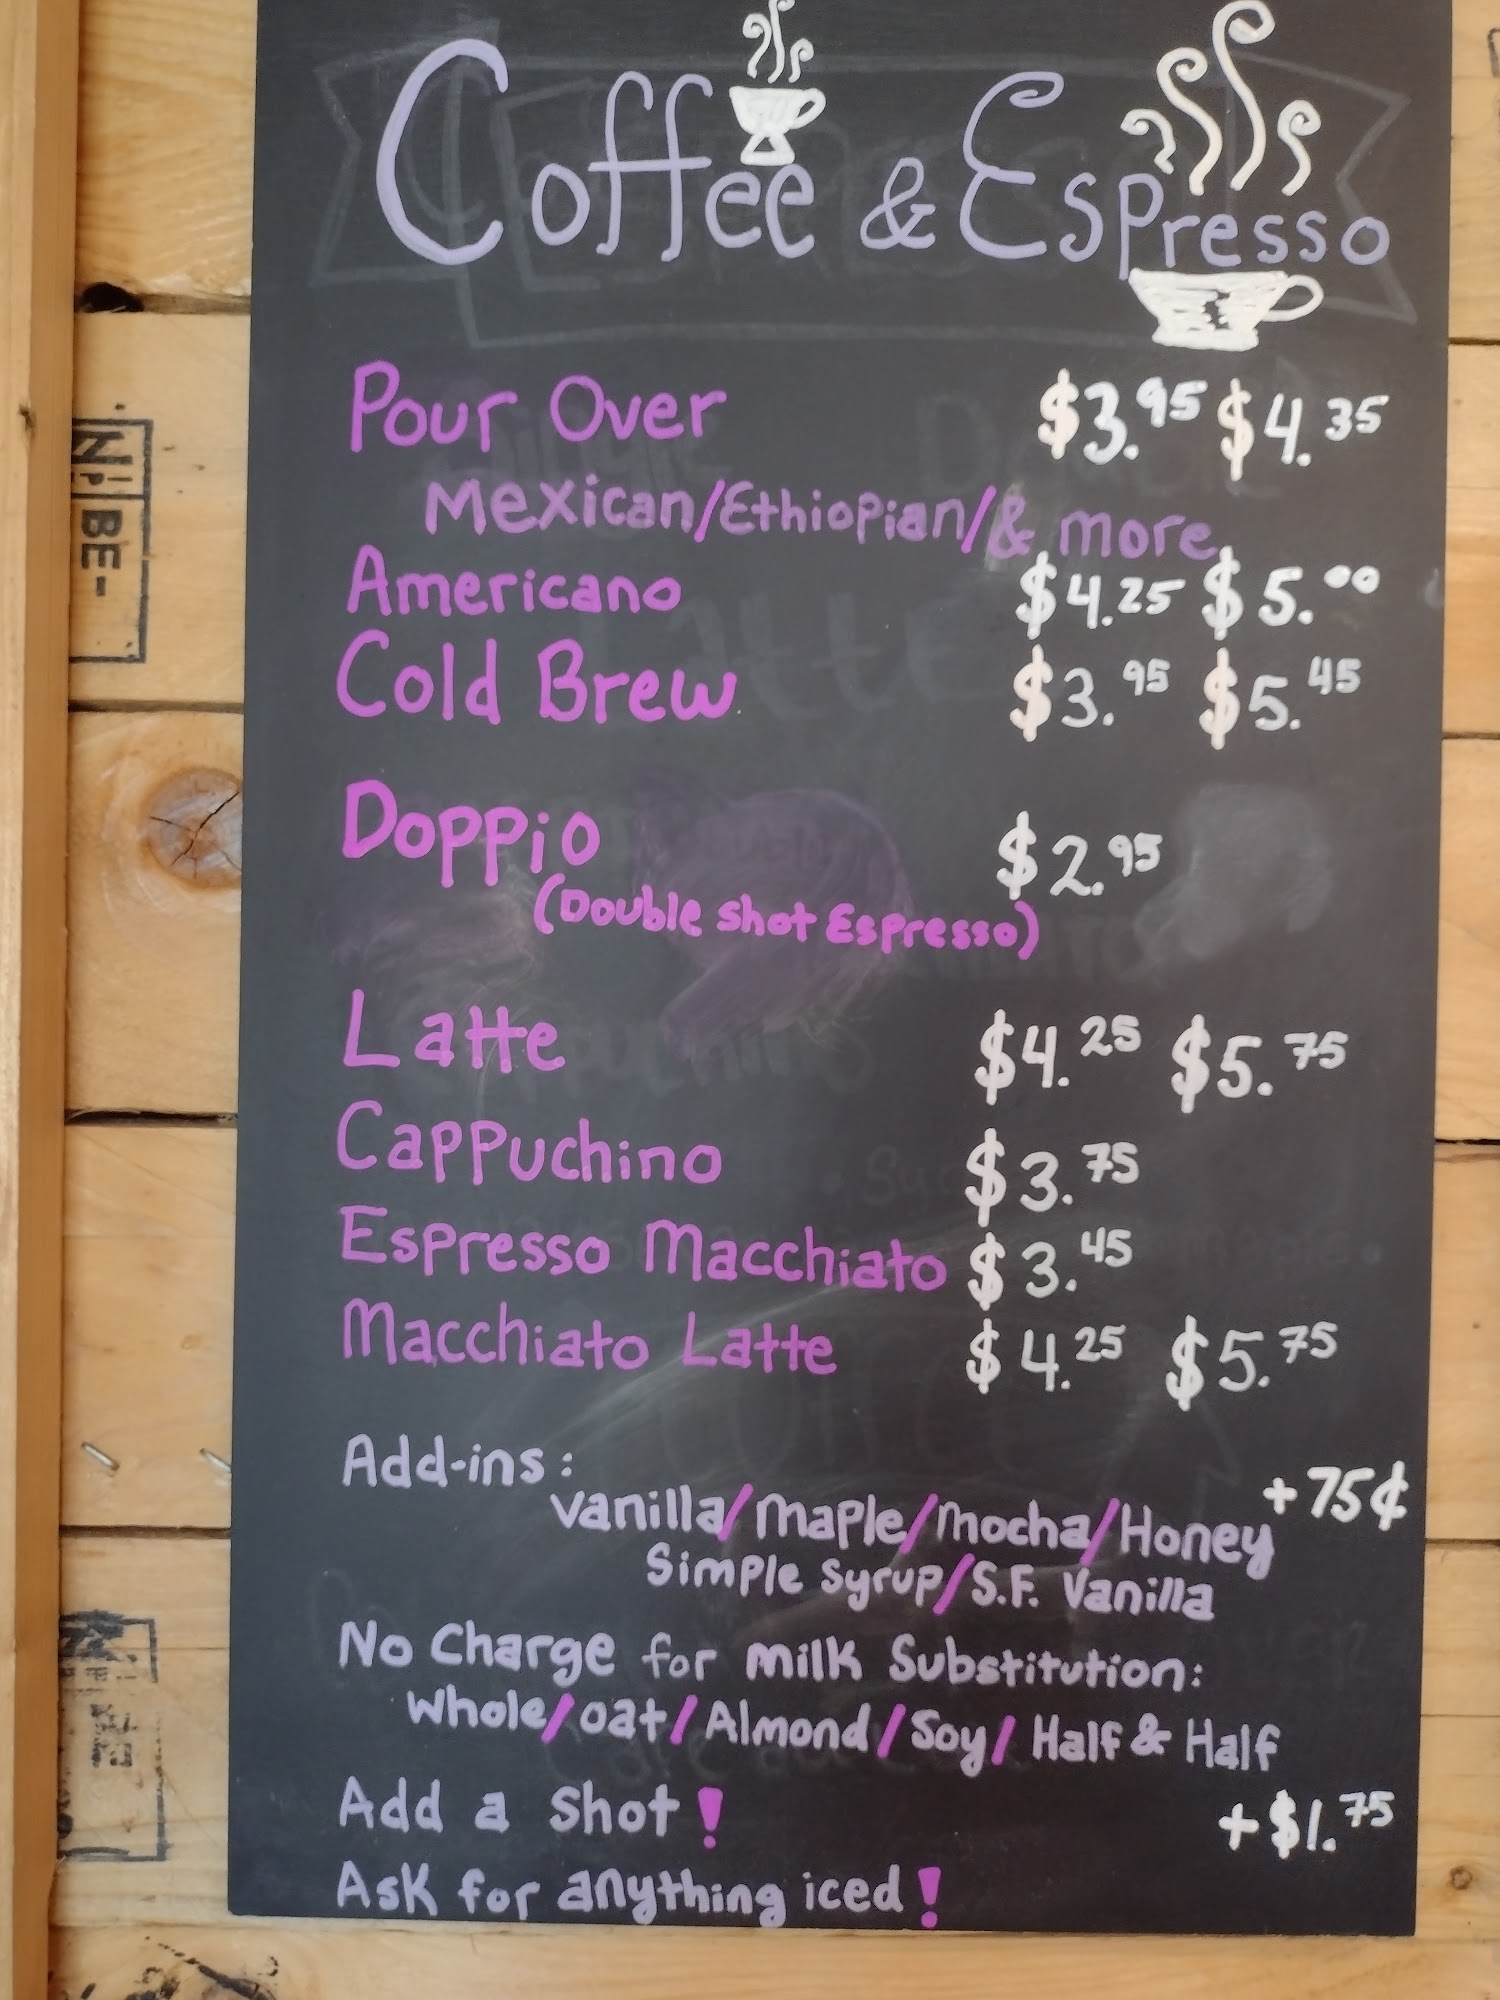 Coffee & Espresso
Pour Over $3.95 $4.35
Mexican/Ethiopian/& more
Americano $4.25 $5.00
Cold Brew $3.95 $5.45
Doppio $2.95
(Double Shot Espresso)
Latte $4.25 $5.75
Cappuchino $3.75
Espresso Macchiato $3.45
Macchiato Latte $4.25 $5.75
Add-ins: +75¢
Vanilla/Maple/Mocha/Honey
Simple Syrup/S.F. Vanilla
No Charge for Milk Substitution:
Whole/Oat/Almond/Soy/Half & Half
Add a Shot! +$1.75
Ask for anything iced!
BE-